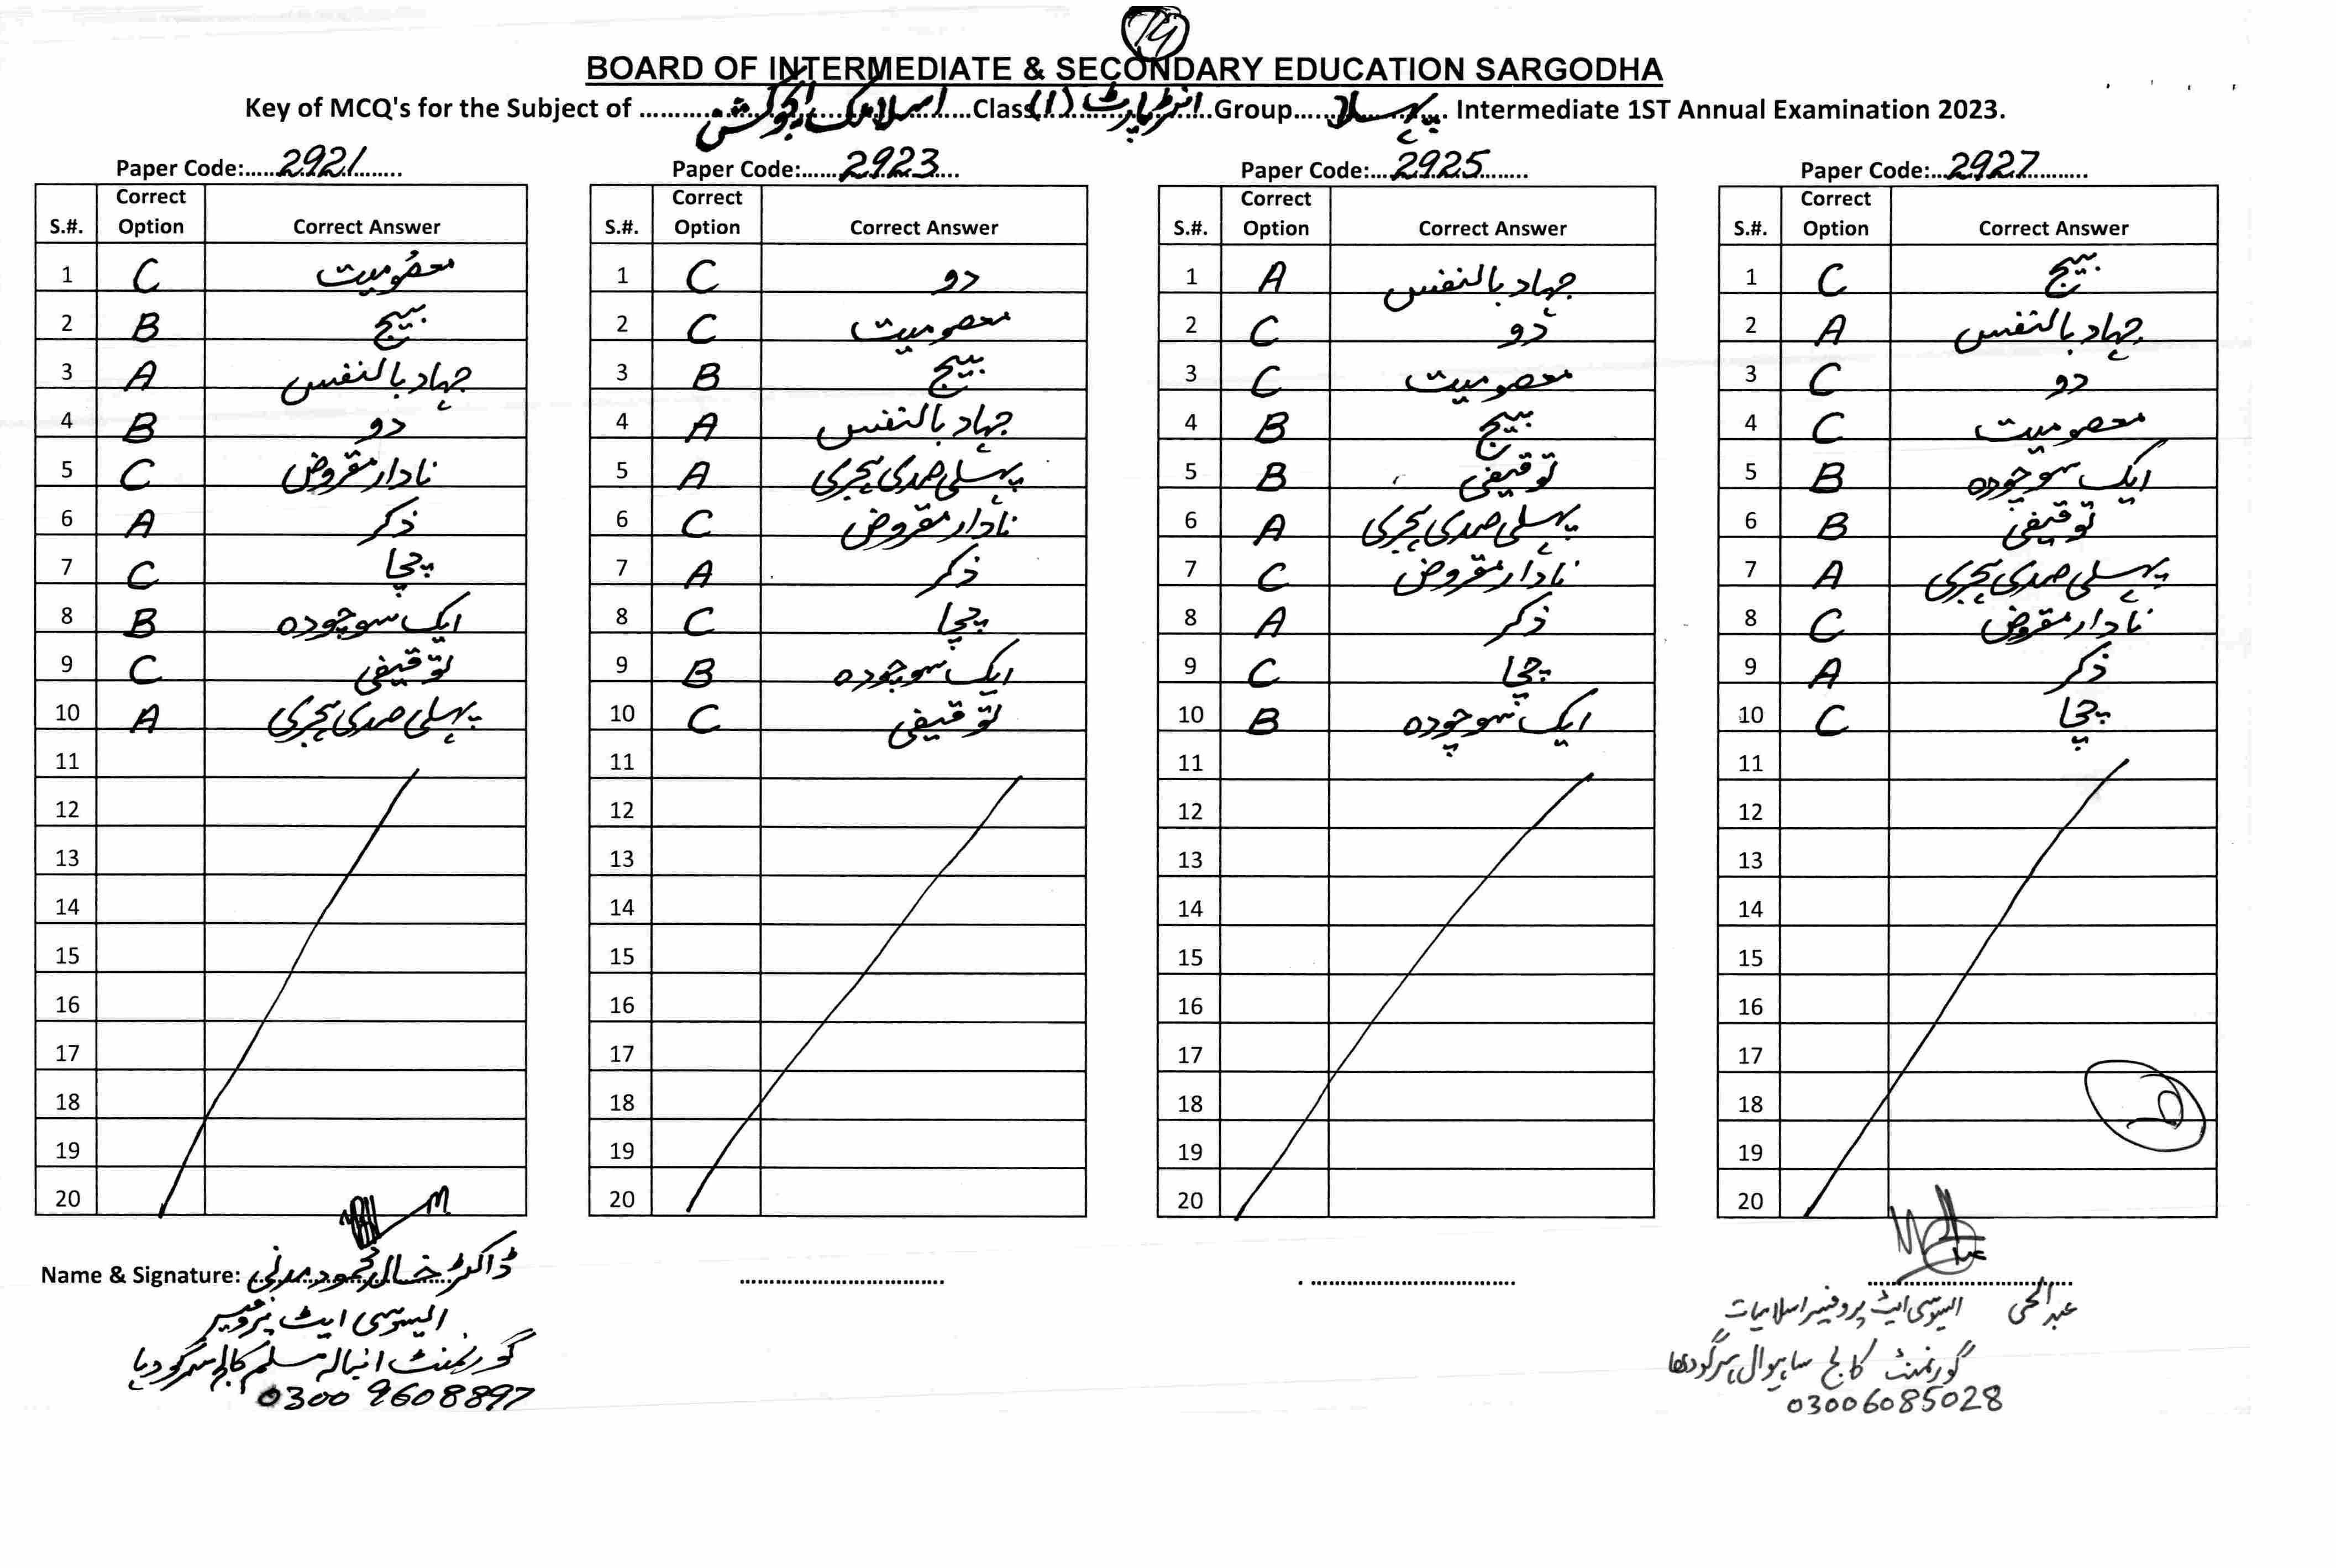 14
BOARD OF INTERMEDIATE & SECONDARY EDUCATION SARGODHA
Key of MCQ's for the Subject of اسلامک ایجوکیشن Class انٹر پارٹ (I) Group پہلا Intermediate 1ST Annual Examination 2023.
Paper Code: 2921
S.#. Correct Option Correct Answer
1 C معصومیت
2 B بیج
3 A جہاد بالنفس
4 B دو
5 C نادار مقروض
6 A ذکر
7 C چچا
8 B ایک سو چودہ
9 C توقیفی
10 A پہلی صدی ہجری
11
12
13
14
15
16
17
18
19
20
Paper Code: 2923
S.#. Correct Option Correct Answer
1 C دو
2 C معصومیت
3 B بیج
4 A جہاد بالنفس
5 A پہلی صدی ہجری
6 C نادار مقروض
7 A ذکر
8 C چچا
9 B ایک سو چودہ
10 C توقیفی
11
12
13
14
15
16
17
18
19
20
Paper Code: 2925
S.#. Correct Option Correct Answer
1 A جہاد بالنفس
2 C دو
3 C معصومیت
4 B بیج
5 B توقیفی
6 A پہلی صدی ہجری
7 C نادار مقروض
8 A ذکر
9 C چچا
10 B ایک سو چودہ
11
12
13
14
15
16
17
18
19
20
Paper Code: 2927
S.#. Correct Option Correct Answer
1 C بیج
2 A جہاد بالنفس
3 C دو
4 C معصومیت
5 B ایک سو چودہ
6 B توقیفی
7 A پہلی صدی ہجری
8 C نادار مقروض
9 A ذکر
10 C چچا
11
12
13
14
15
16
17
18
19
20
Name & Signature: ڈاکٹر خالد محمود مدنی
ایسوسی ایٹ پروفیسر
گورنمنٹ انبالہ مسلم کالج سرگودہا
0300 9608897
عبدالحی ایسوسی ایٹ پروفیسر اسلامیات
گورنمنٹ کالج ساہیوال سرگودھا
03006085028